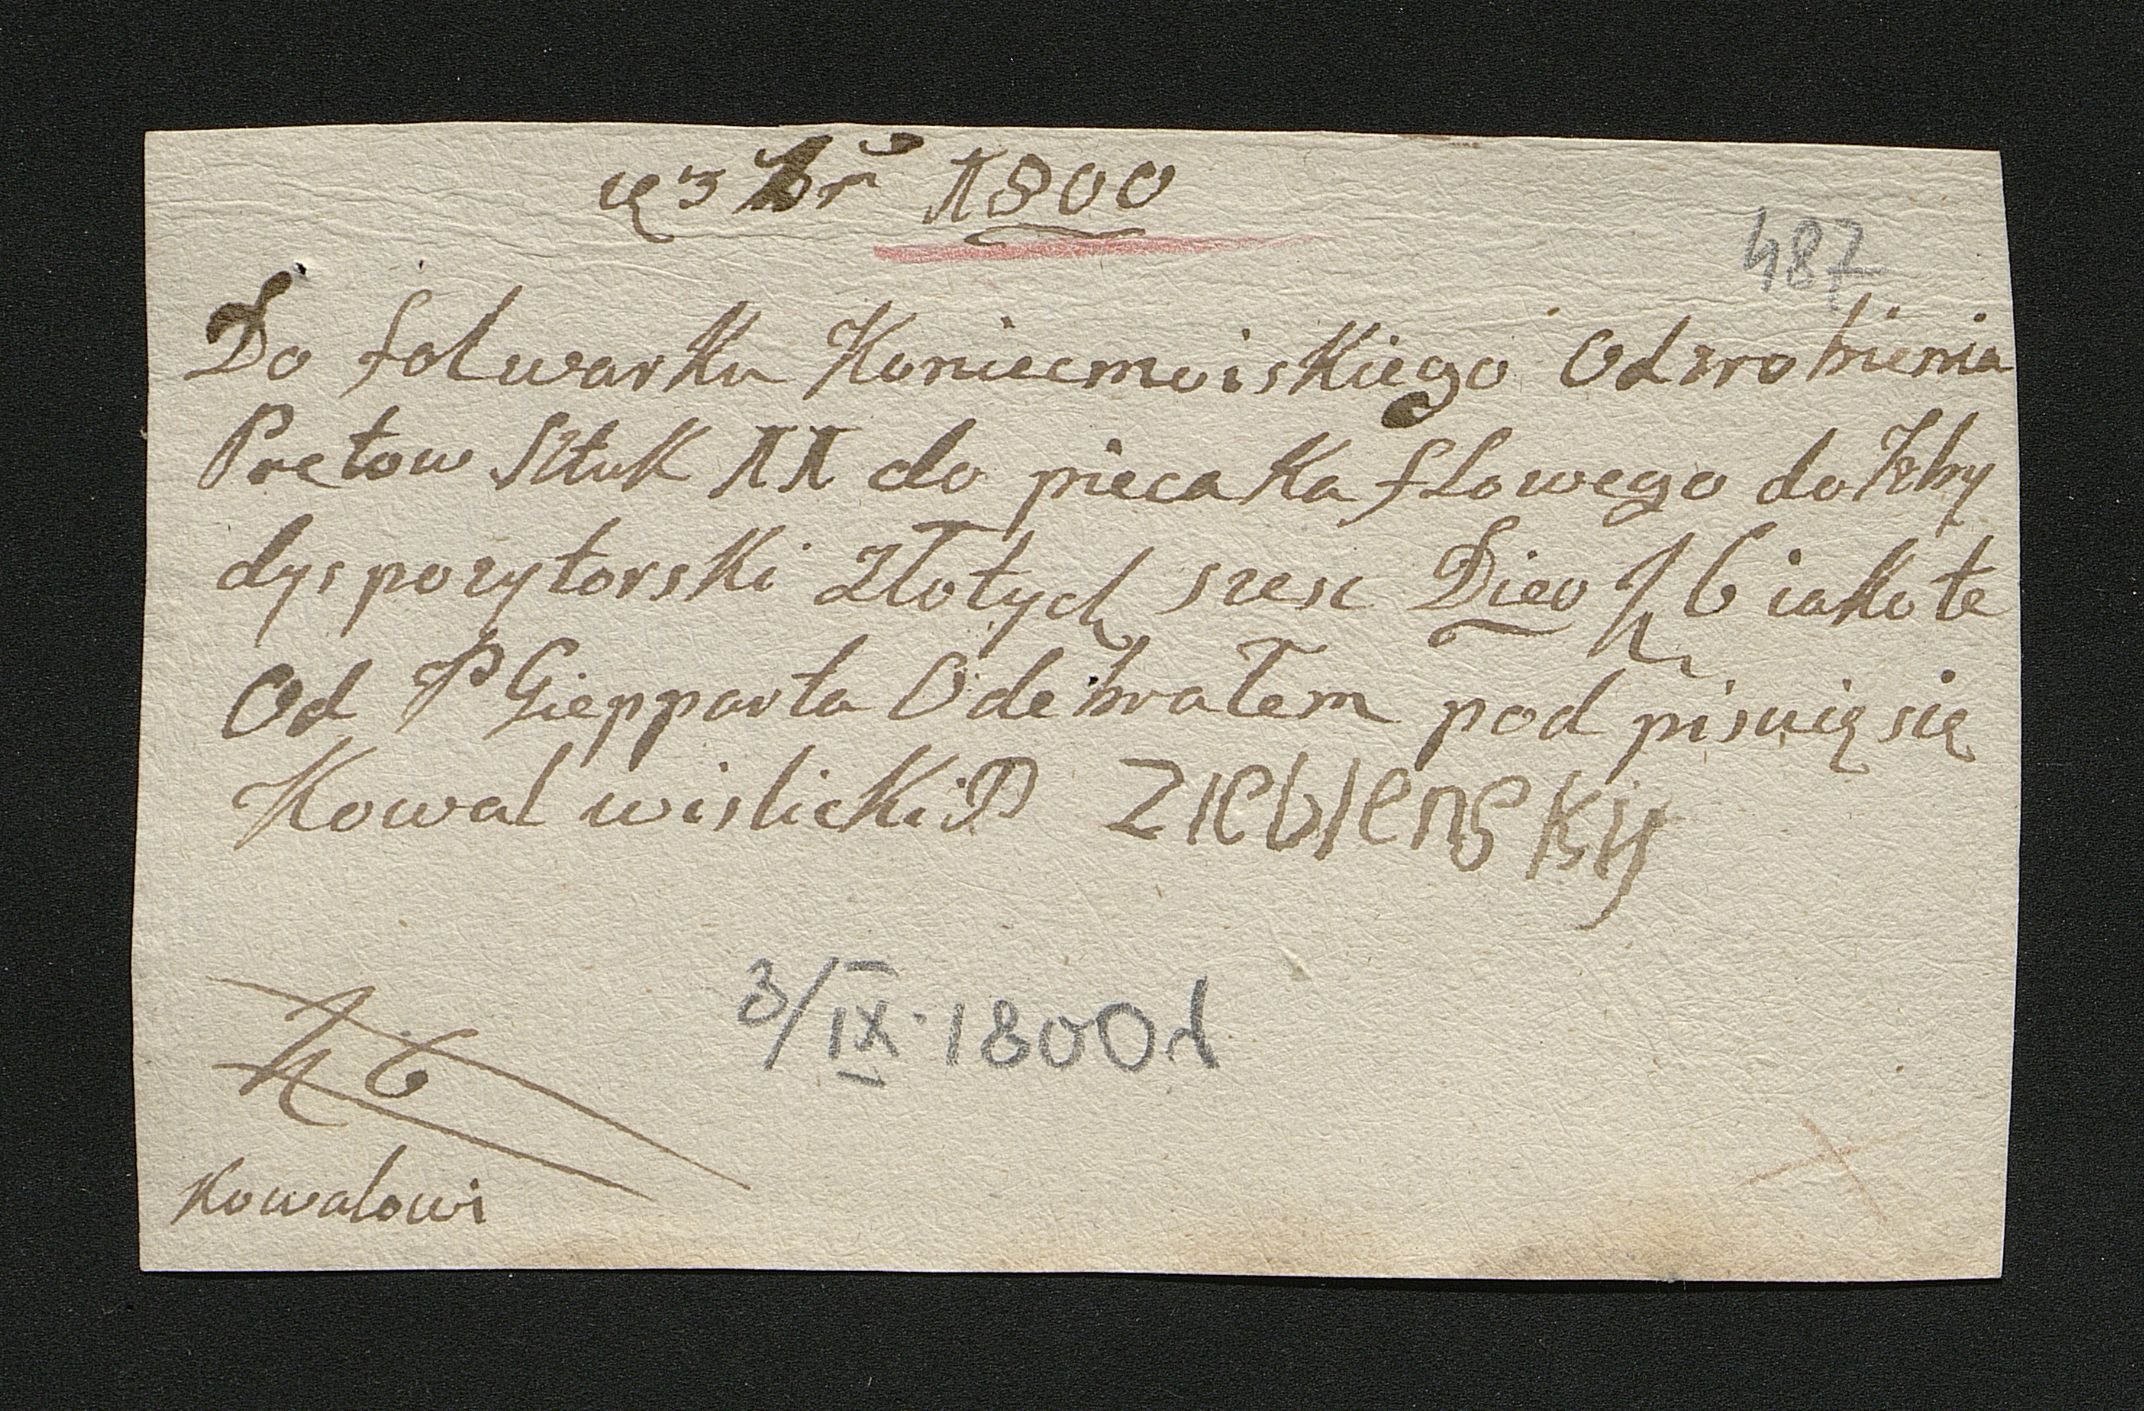 3 7br 1800
487
Do folwarku Koniecmoiskiego Od zrobienia
Prętow Sztuk 11 do pieca Kaflowego do Izby
dyspozytorski Złotych szesc Dico Zł 6 iako te
Od P Giepparta Odebrałem pod pisuię się
Kowal wislicki P ZIebIenskij
3/IX. 1800 d
Zł 6
Kowalowi